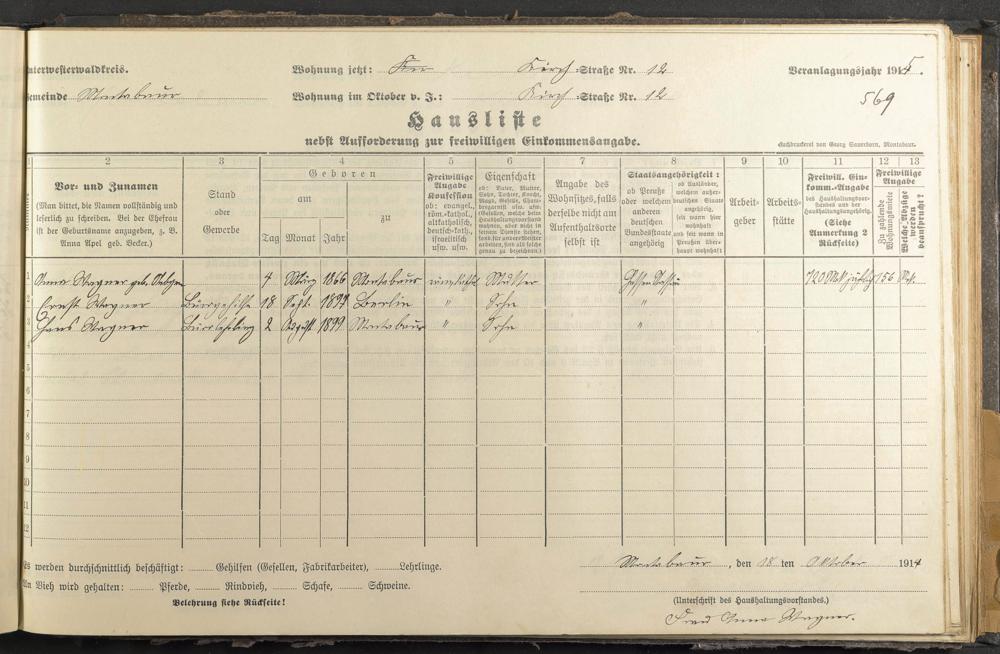 nterwesterwaldkreis.
Wohnung jetzt: Kirch-Straße Nr. 12
Veranlagungsjahr 1915.
emeinde Montabaur
Wohnung im Oktober v. J.: Kirch-Straße Nr. 12
569
Hausliste
nebst Aufforderung zur freiwilligen Einkommensangabe.
Buchdruckerei von Georg Sauerborn, Montabaur.
1 2 3 4 5 6 7 8 9 10 11 12 13
Vor- und Zunamen
(Man bittet, die Namen vollständig und
leserlich zu schreiben. Bei der Ehefrau
ist der Geburtsname anzugeben, z. B.
Anna Apel geb. Becker.)
Stand
oder
Gewerbe
Geboren
am
Tag Monat Jahr
zu
Freiwillige
Angabe
Konfession
ob: evangel.,
röm.-kathol.,
altkatholisch,
deutsch-kath.,
israelitisch
usw. usw.
Eigenschaft
ob: Vater, Mutter,
Sohn, Tochter, Knecht,
Magd, Geselle,
Angabe des
Wohnsitzes, falls
derselbe nicht am
Aufenthaltsorte
selbst ist
Staatsangehörigkeit:
ob Preuße
oder welchem
anderen
deutschen
Bundesstaate
angehörig
ob Ausländer,
welchem außer-
deutschen Staate
angehörig,
seit wann hier
wohnhaft
und seit wann in
Preußen über-
haupt wohnhaft
Arbeit-
geber
Arbeits-
stätte
Freiwill. Ein-
komm.-Angabe
des Haushaltungsvor-
standes und der
Haushaltungsangehörig.
(Siehe
Anmerkung 2
Rückseite)
Freiwillige
Angabe
Zu zahlende
Wohnungsmiete
Welche Abzüge
werden
beansprucht?
1 Anna Wagner geb. 4 März 1866 Montabaur Mutter 720 Mk 156 Mk.
2 Ernst Wagner 18 Sept. Berlin " Sohn "
3 Hans Wagner 2 August 1899 Montabaur " Sohn "
4
5
6
7
8
9
10
11
12
s werden durchschnittlich beschäftigt: Gehilfen (Gesellen, Fabrikarbeiter), Lehrlinge.
Montabaur, den 18 ten Oktober 1914
n Vieh wird gehalten: Pferde, Rindvieh, Schafe, Schweine.
Belehrung siehe Rückseite!
(Unterschrift des Haushaltungsvorstandes.)
Frau Anna Wagner.